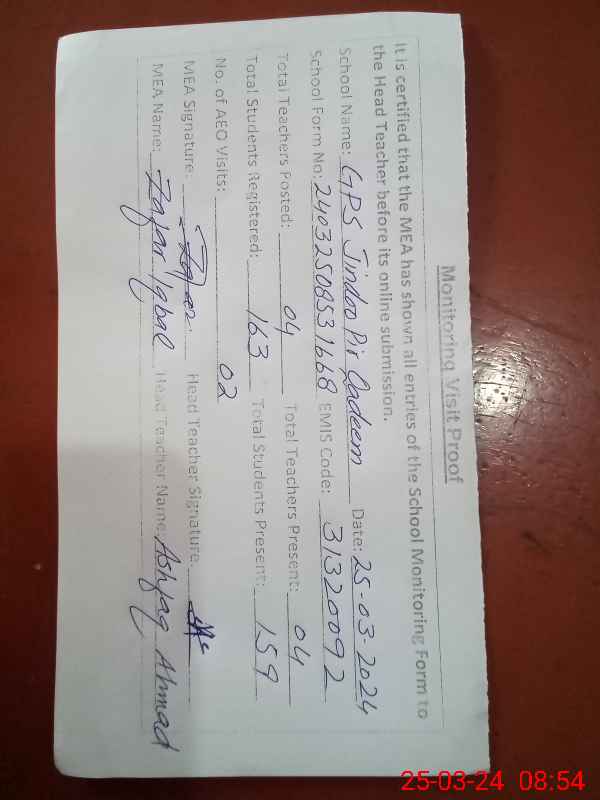 Monitoring Visit Proof
It is certified that the MEA has shown all entries of the School Monitoring Form to
the Head Teacher before its online submission.
School Name: GPS Jindoo Pir Qadeem Date: 25-03-2024
School Form No: 24032508531668 EMIS Code: 31320092
Total Teachers Posted: 04 Total Teachers Present: 04
Total Students Registered: 163 Total Students Present: 159
No. of AEO Visits: 02
MEA Signature: Zafar Head Teacher Signature:
MEA Name: Zafar Iqbal Head Teacher Name: Ashfaq Ahmad
25-03-24 08:54